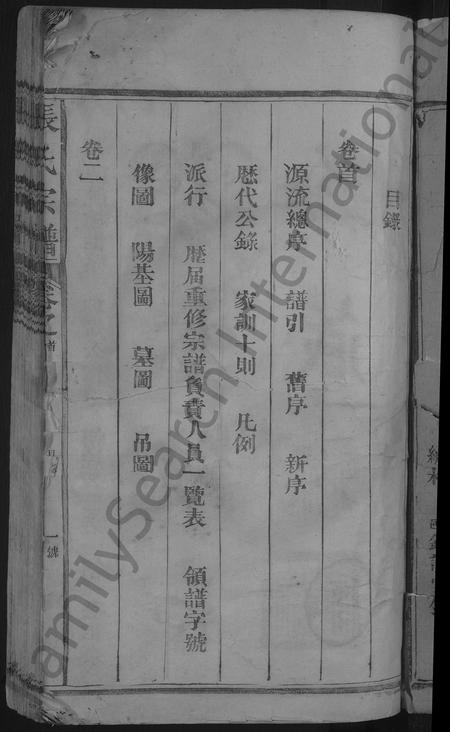 目錄
卷首
源流總序 譜引 舊序 新序
歷代公錄 家訓十則 凡例
派行 歷屆重修宗譜負責人員一覽表 領譜字號
像圖 陽基圖 墓圖 吊圖
卷二
張氏宗譜 卷之首
一號
FamilySearch International